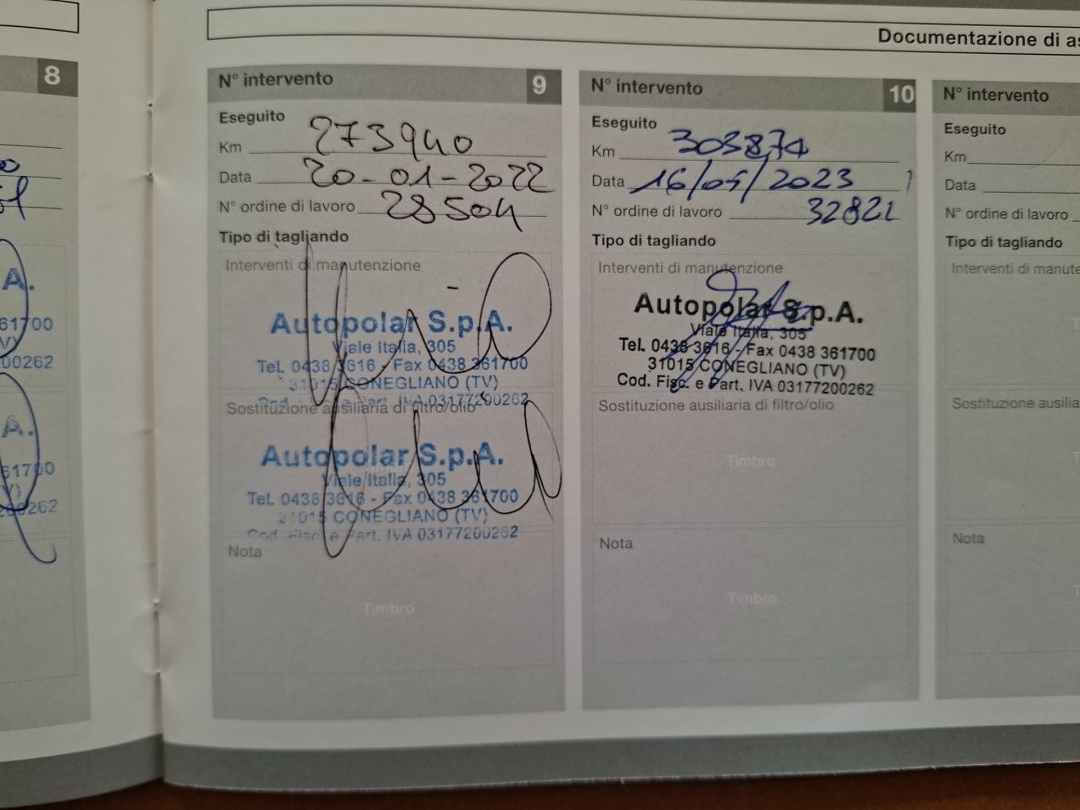 8
A.
61700
V)
00262
A.
61700
V)
Documentazione di as
N° intervento 9
Eseguito
Km 273940
Data 20-01-2022
N° ordine di lavoro 28504
Tipo di tagliando
Interventi di manutenzione
Autopolar S.p.A.
Viale Italia, 305
Tel. 0438 3616 - Fax 0438 361700
31015 CONEGLIANO (TV)
Cod. Fisc. e Part. IVA 03177200262
Sostituzione ausiliaria di filtro/olio
Autopolar S.p.A.
Viale Italia, 305
Tel. 0438 3616 - Fax 0438 361700
31015 CONEGLIANO (TV)
Cod. Fisc. e Part. IVA 03177200262
Nota
Timbro
N° intervento 10
Eseguito
Km 303874
Data 16/05/2023
N° ordine di lavoro 32821
Tipo di tagliando
Interventi di manutenzione
Autopolar S.p.A.
Viale Italia, 305
Tel. 0438 3616 - Fax 0438 361700
31015 CONEGLIANO (TV)
Cod. Fisc. e Part. IVA 03177200262
Sostituzione ausiliaria di filtro/olio
Timbro
Nota
Timbro
N° intervento
Eseguito
Km
Data
N° ordine di lavoro
Tipo di tagliando
Interventi di manute
Sostituzione ausilia
Nota